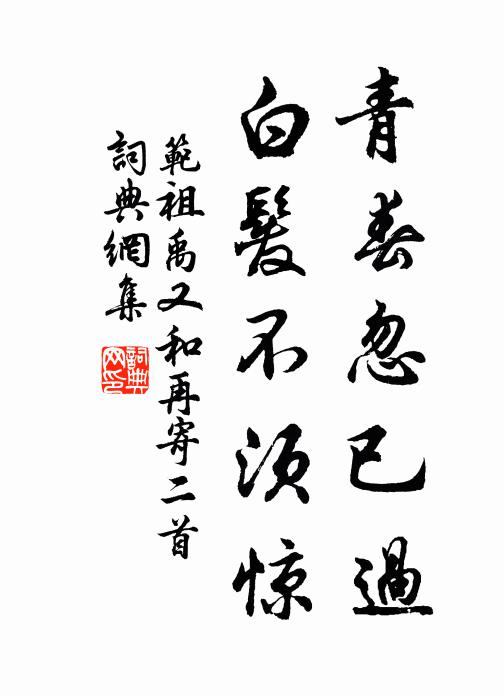 青春忽已過
白髮不須惊
範祖禹又和再寄二首
詞典網集
詞典网印